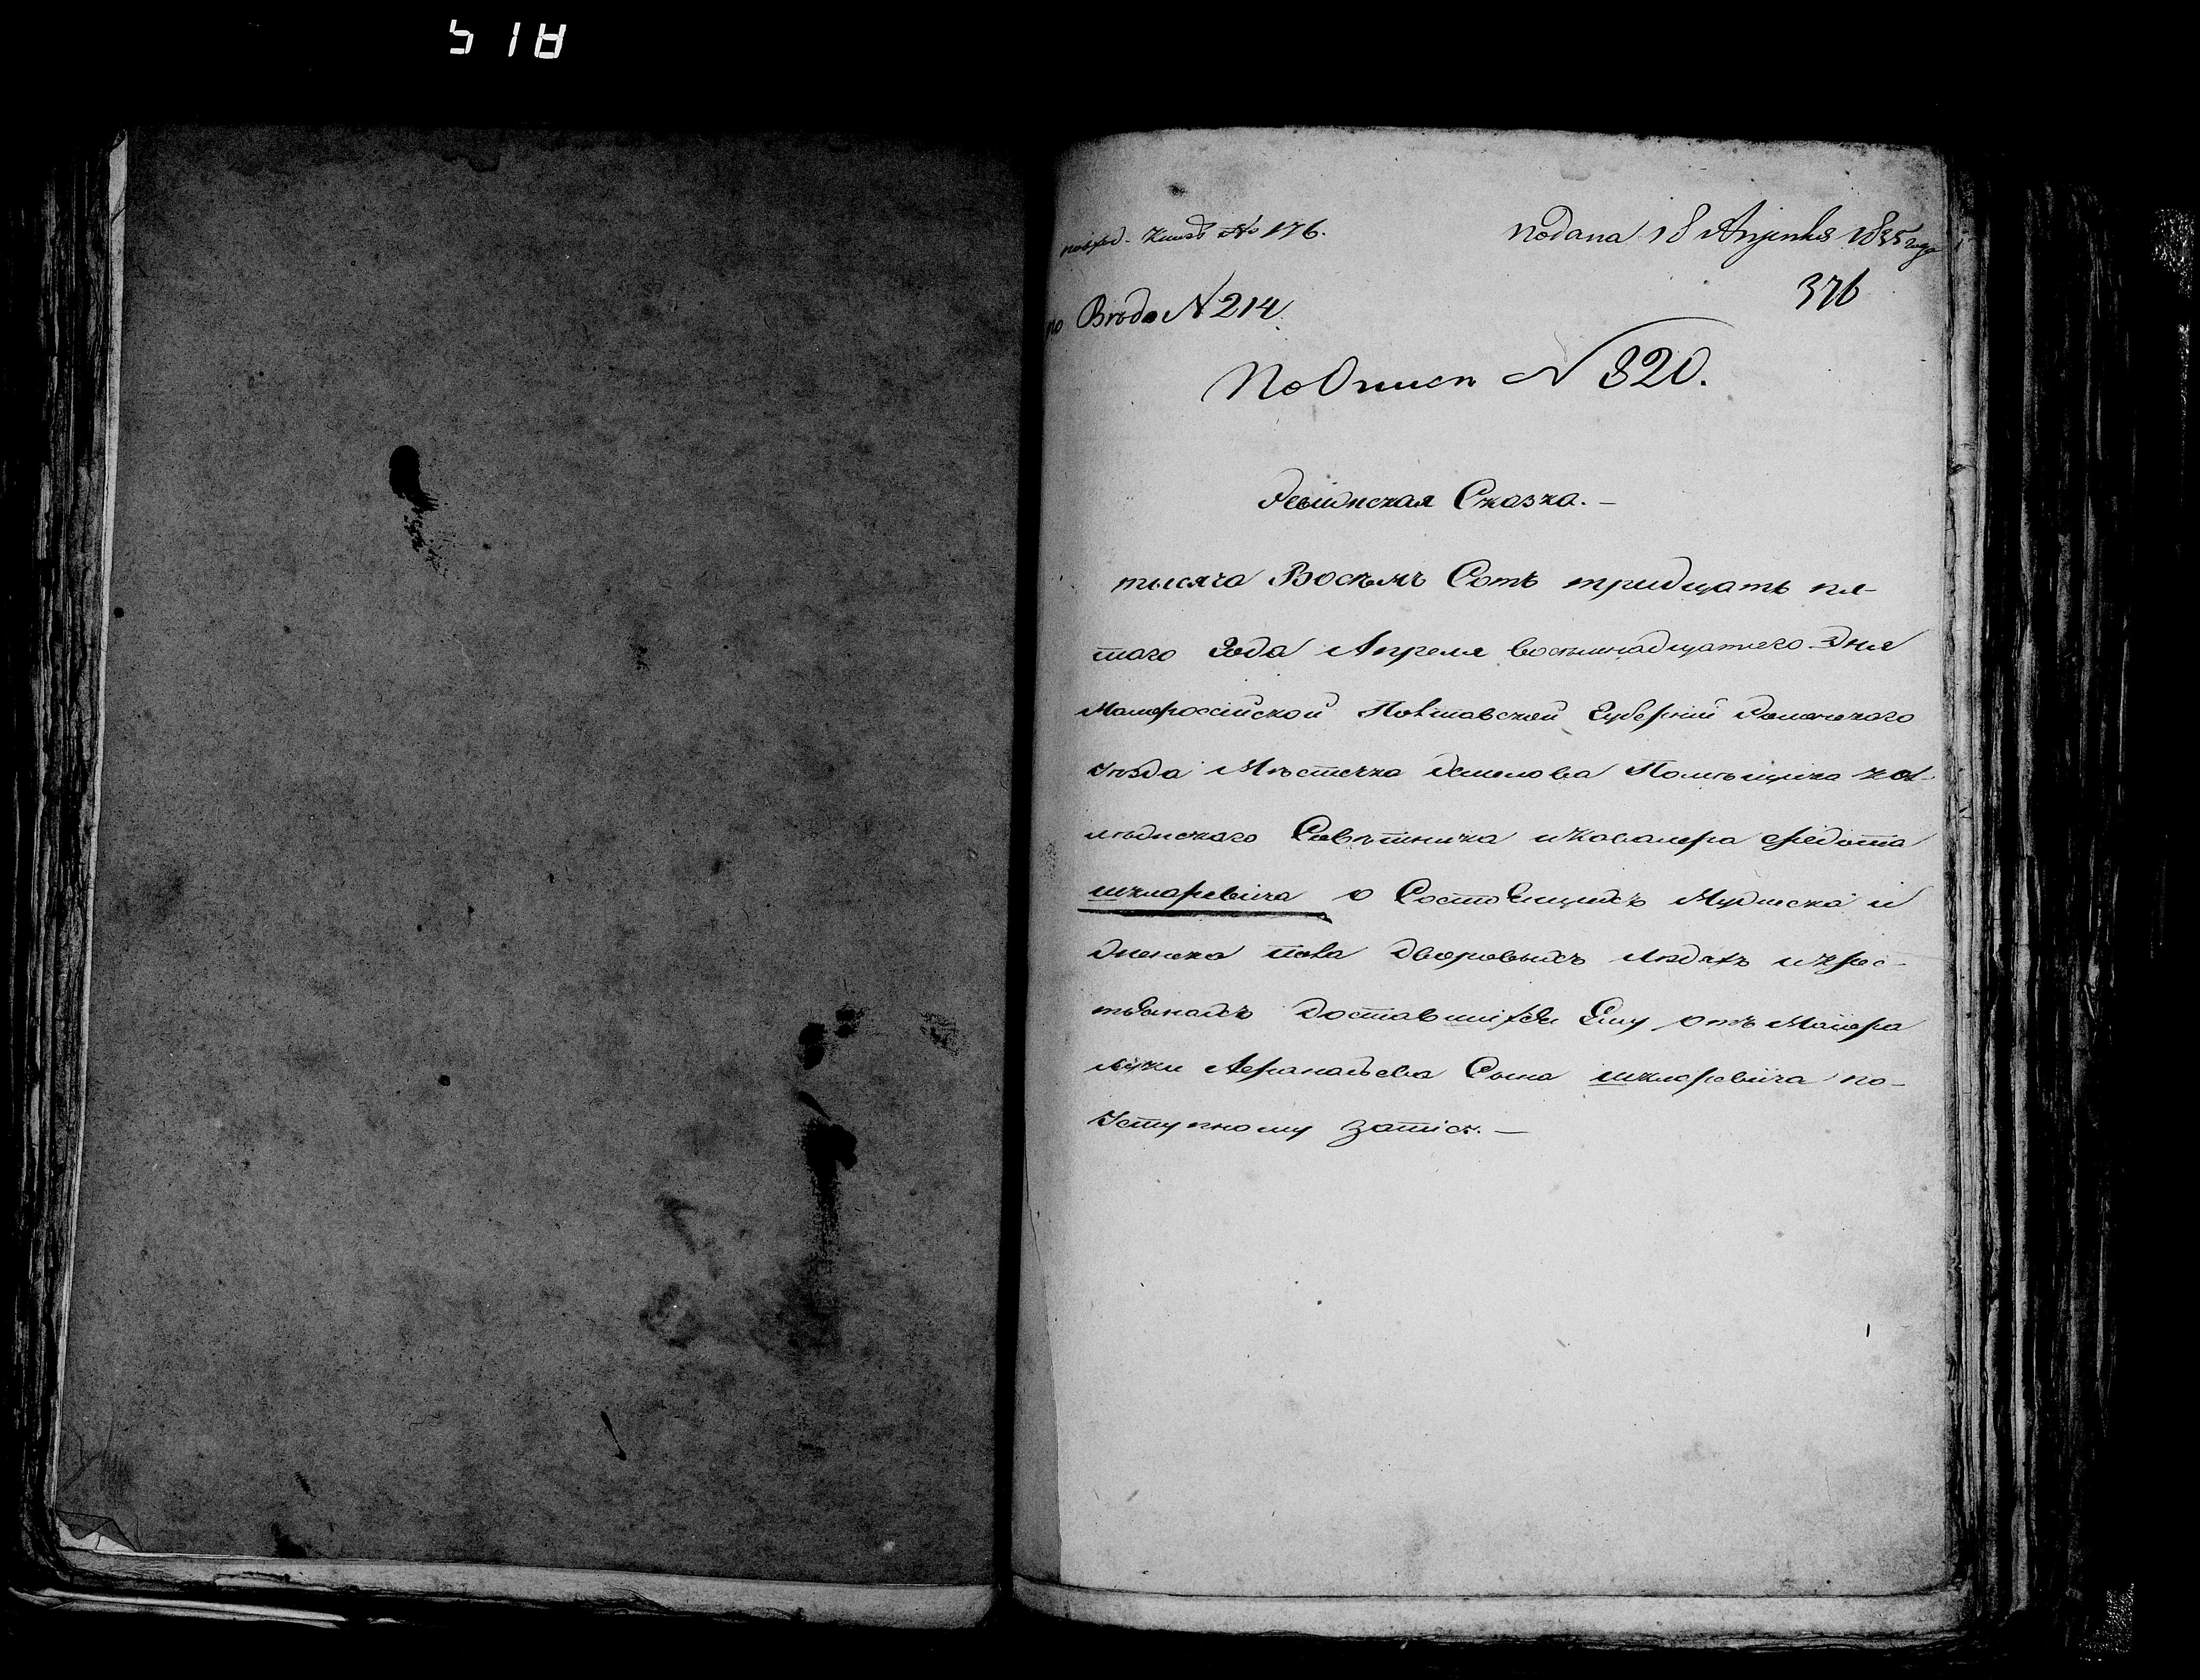 книгѣ № 176.
подана 18 Апрѣля 1835 года
376
по Вѣдо № 214
По Описи № 820.
Ревизская Сказка. —
тысяча Восемь Сотъ тридцать пя-
таго Года Апреля восьмнадцатого Дня
Малороссійской Полтавской Губерніи Роменского
уѣзда Мѣстечка Смелова Помѣщика кол-
лежского Совѣтника и кавалера Федота
шкляревича о Состоящихъ Мужеска и
женска пола дворовыхъ людяхъ и крес-
тьянахъ доставшихся Ему отъ Маиора
луки Афанасьева Сына шкляревича по-
Уступному запісѣ. —